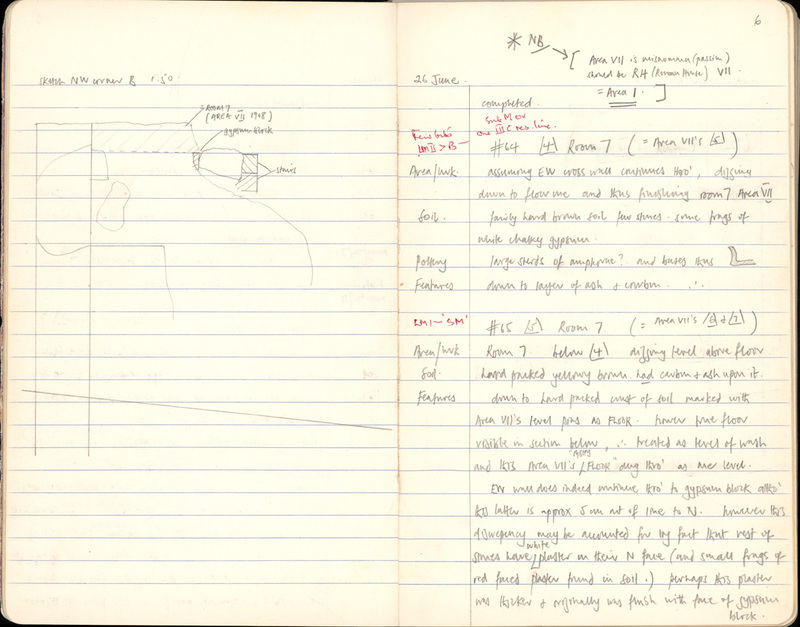 Sketch NW corner B 1:50
ROOM 7
(AREA VII 1968)
gypsum block
stairs
6
* NB
[ Area VII is misnomer (passim)
should be RH (Roman House) VII
= Area 1. ]
26 June.
completed.
Sub M or
one III C res. line.
Few bits
LMII > B —
#64 [4] Room 7 ( = Area VII's [5] )
Area/wk. assuming EW cross wall continues thro', digging
down to floor one and thus finishing room 7 Area VII
Soil. fairly hard brown soil few stones. some frags of
white chalky gypsum.
Pottery large sherds of amphorae? and bases thus
Features down to layer of ash & carbon. ∴
LM1 – 'SM'
#65 [5] Room 7. ( = Area VII's [6] & [7] )
Area/wk Room 7. below [4] digging level above floor
Soil. hard packed yellowy brown. had carbon & ash upon it.
Features down to hard packed crust of soil marked with
Area VII's level pins as FLOOR. howev true floor
visible in section below, ∴ treated as level of wash
and this Area VII's "FLOOR" dug thro' as one level.
EW wall does indeed continue thro' to gypsum block altho'
this latter is approx 5 cm out of line to N. however this
discrepency may be accounted for by fact that rest of
stones have white plaster on their N face (and small frags of
red faced plaster found in soil.) perhaps this plaster
was thicker & originally was flush with face of gypsum
block.